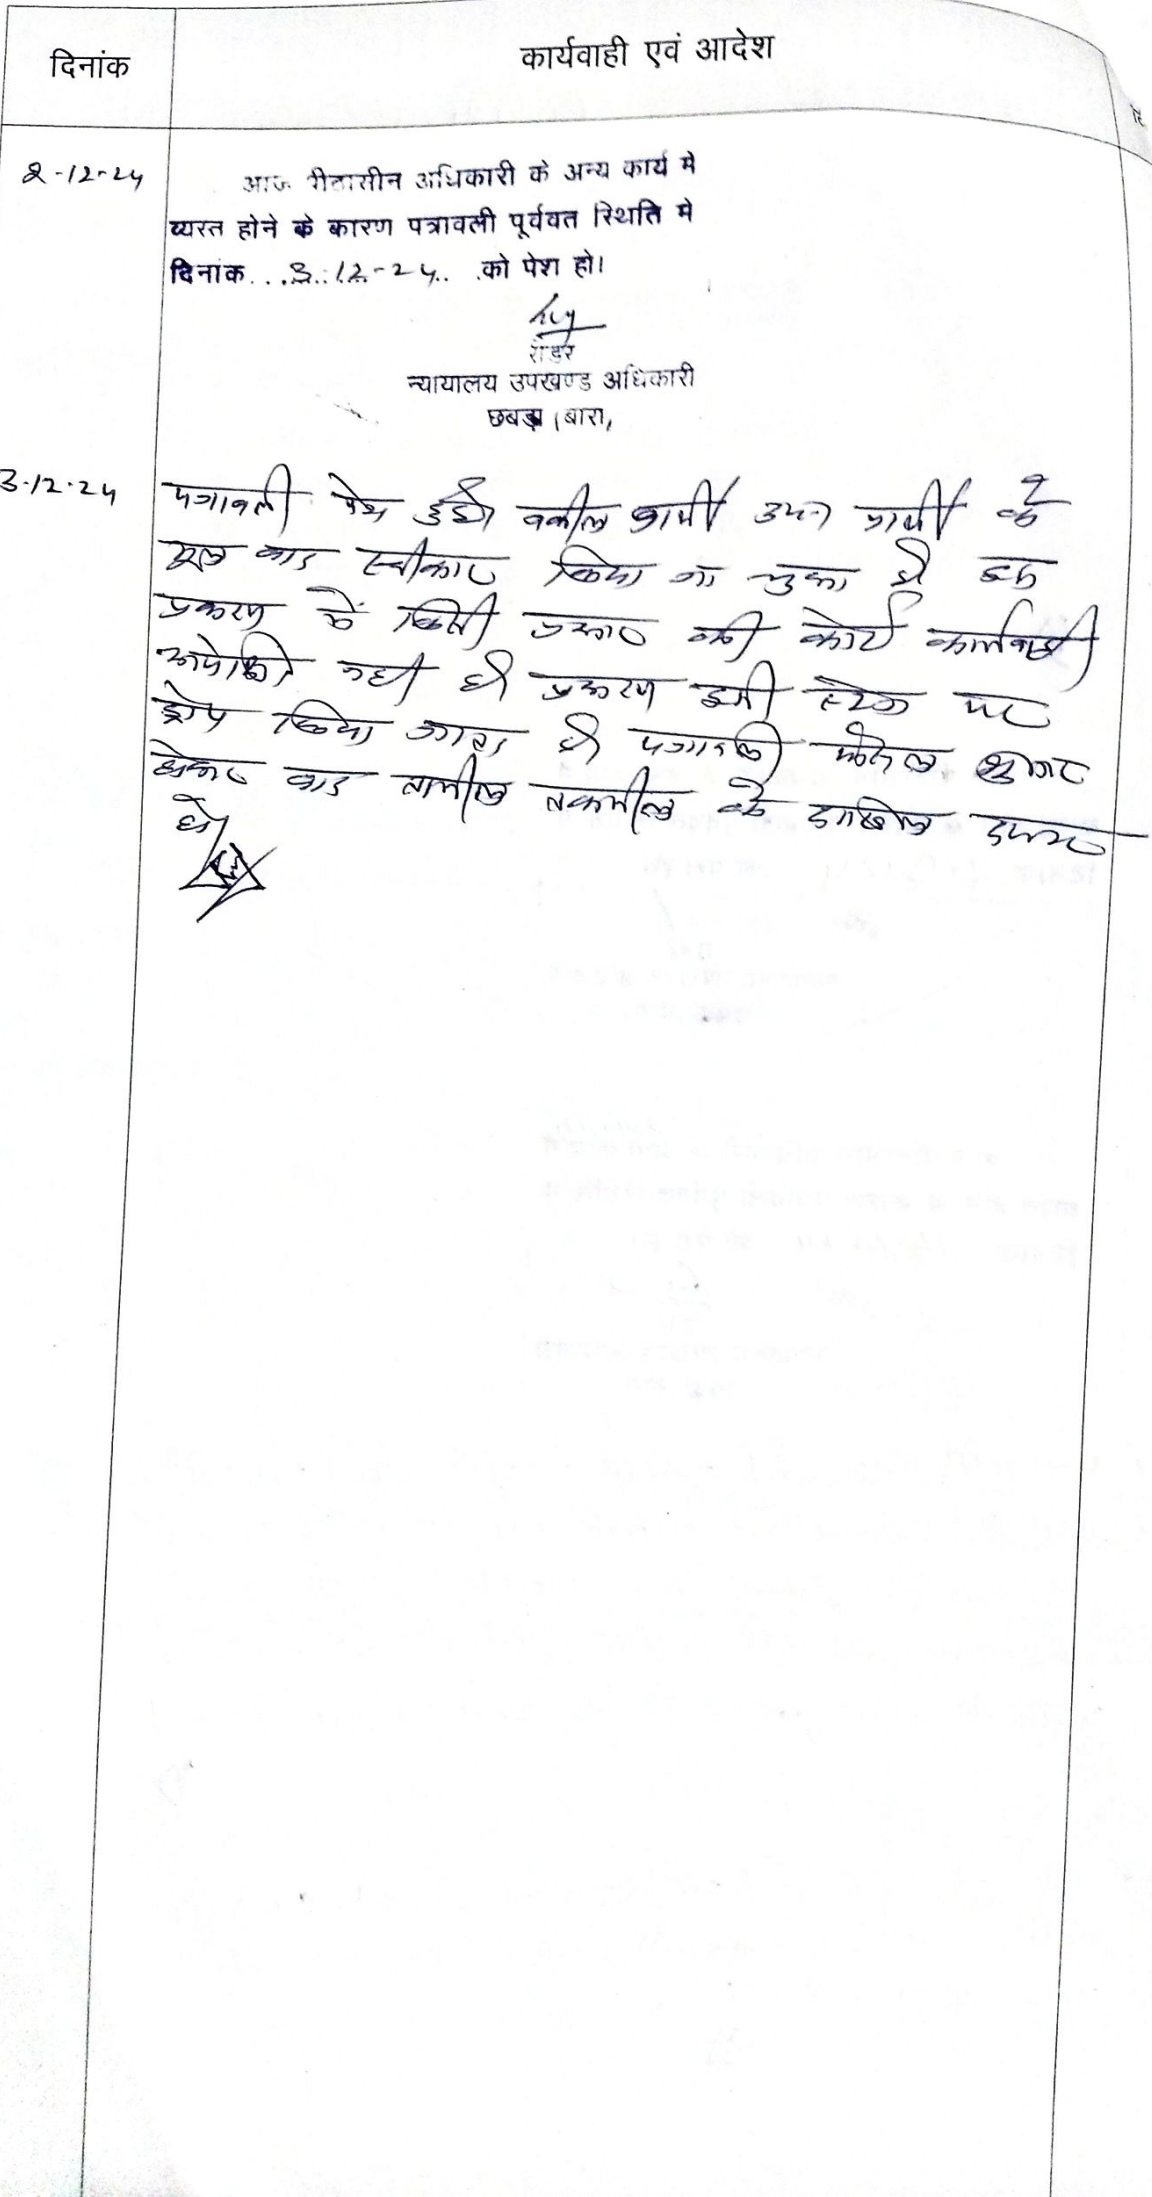 दिनांक
कार्यवाही एवं आदेश
2-12-24
आज पीठासीन अधिकारी के अन्य कार्य मे
व्यस्त होने के कारण पत्रावली पूर्ववत स्थिति मे
दिनांक...3.12-24.. .को पेश हो।
रीडर
न्यायालय उपखण्ड अधिकारी
छबड़ा (बारां)
3.12.24
पत्रावली पेश हुई। वकील प्रार्थी उप० प्रार्थी के
मूल वाद स्वीकार किया जा चुका है
प्रकरण में किसी प्रकार की कोई कार्यवाही
अपेक्षित नहीं है प्रकरण इसी स्टेज पर
ड्रोप किया जाता है पत्रावली फैसल शुमार
होकर बाद तामील तकमील के दाखिल दफ्तर
हो।